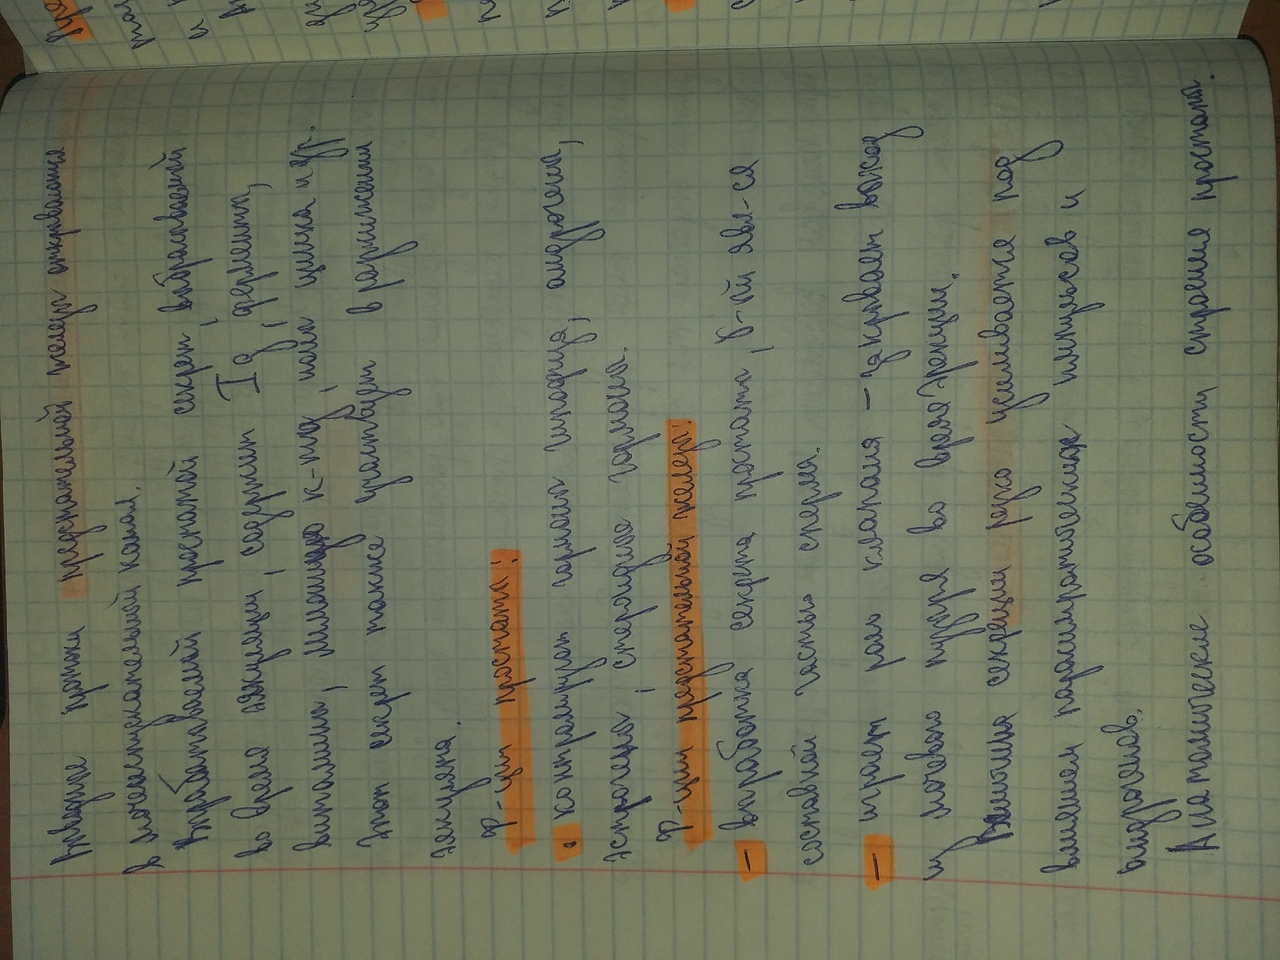 Выводные протоки предстательной железы открываются
в мочеиспускательный канал.
Вырабатываемый простатой секрет, выбрасываемый
во время эякуляции, содержит Ig, ферменты,
витамины, лимонную к-ту, ионы цинка и др.
Этот секрет также участвует в разжижении
эякулята.
Ф-ции простаты:
• контролируют гормоны гипофиза, андрогены,
эстрогены, стероидные гормоны.
Ф-ции предстательной железы:
– выработка секрета простаты, к-ый явл-ся
составной частью спермы.
– играет роль клапана – закрывает выход
из мочевого пузыря во время эрекции.
Величина секреции резко усиливается под
влиянием парасимпатических импульсов и
андрогенов.
Анатомические особенности строения простаты.